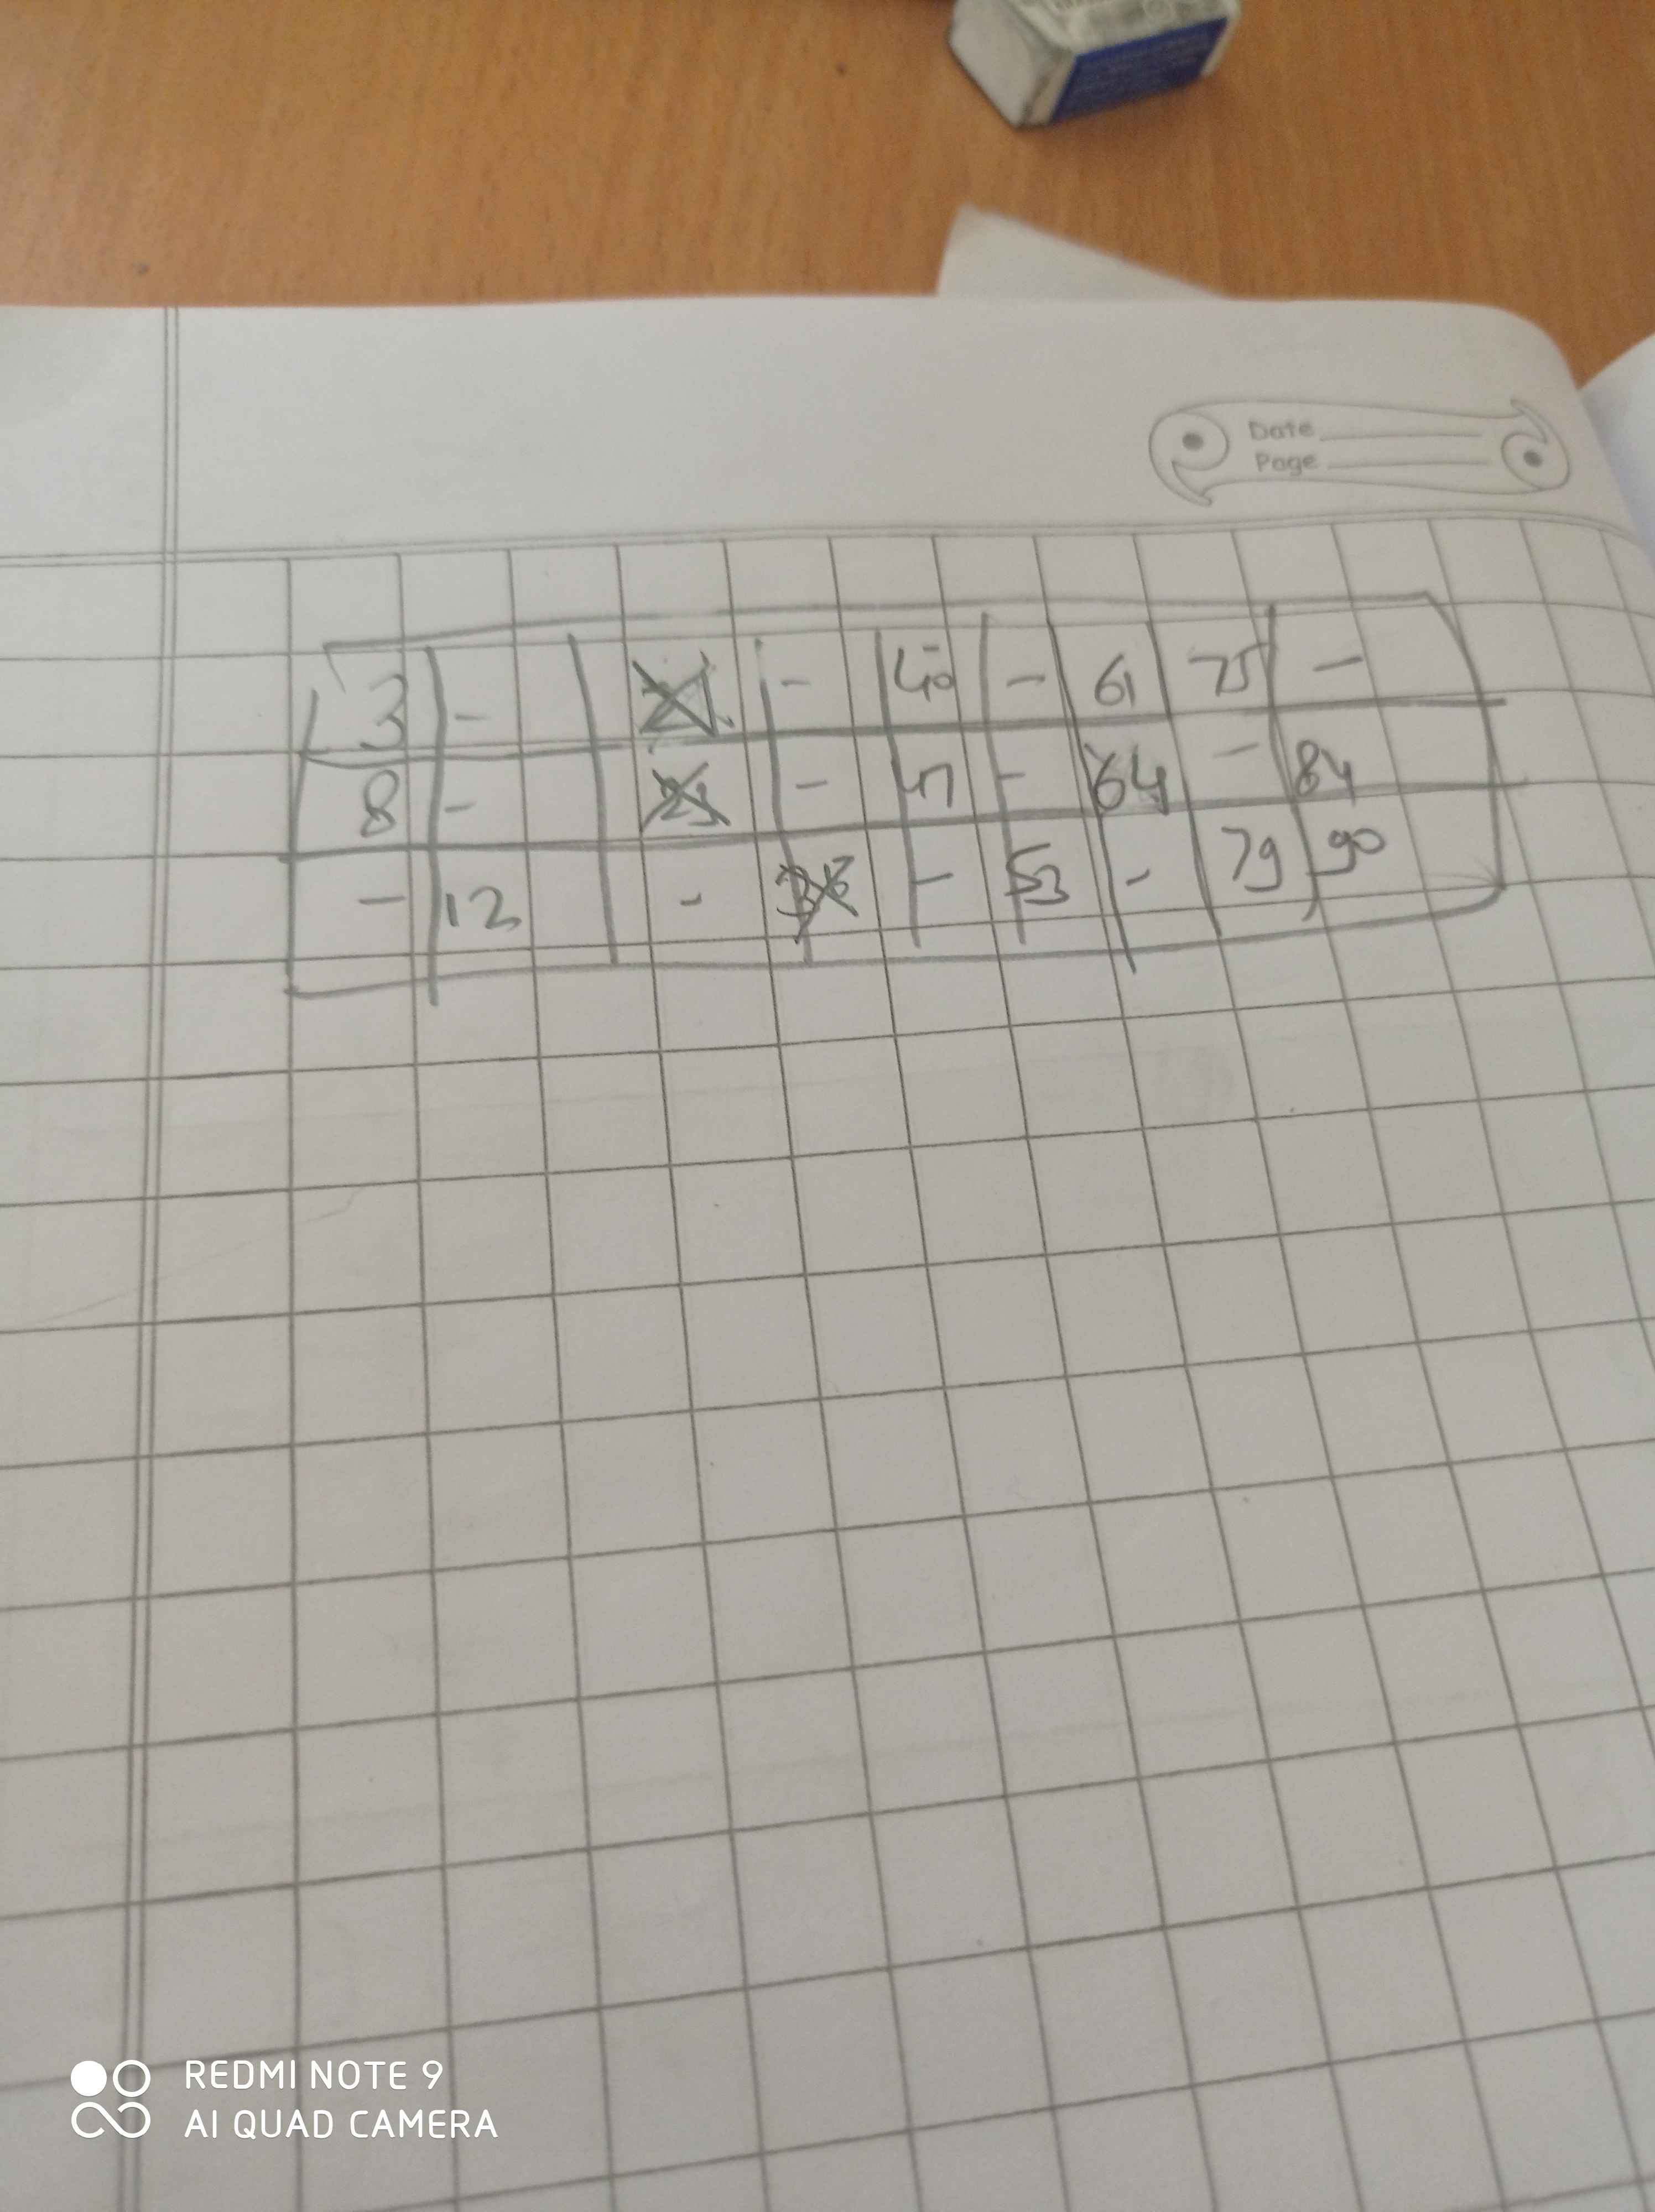 Date
Page
3 - 21 - 40 - 61 75 -
8 - - 47 - 64 - 84
- 12 - 36 - 53 - 79 90
REDMI NOTE 9
AI QUAD CAMERA